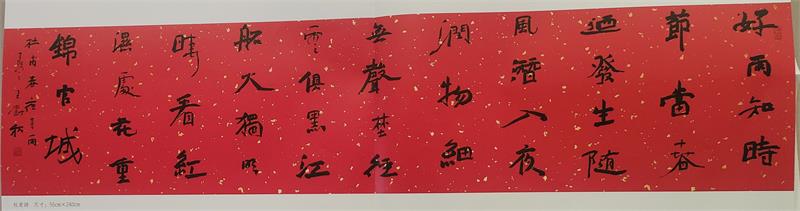 好雨知時
節當春
迺發生隨
風潛入夜
潤物細
無聲埜徑
雲俱黑江
船火獨明
曉看紅
濕處花重
錦官城
杜甫春夜喜雨
杜甫詩 尺寸：55cm×240cm